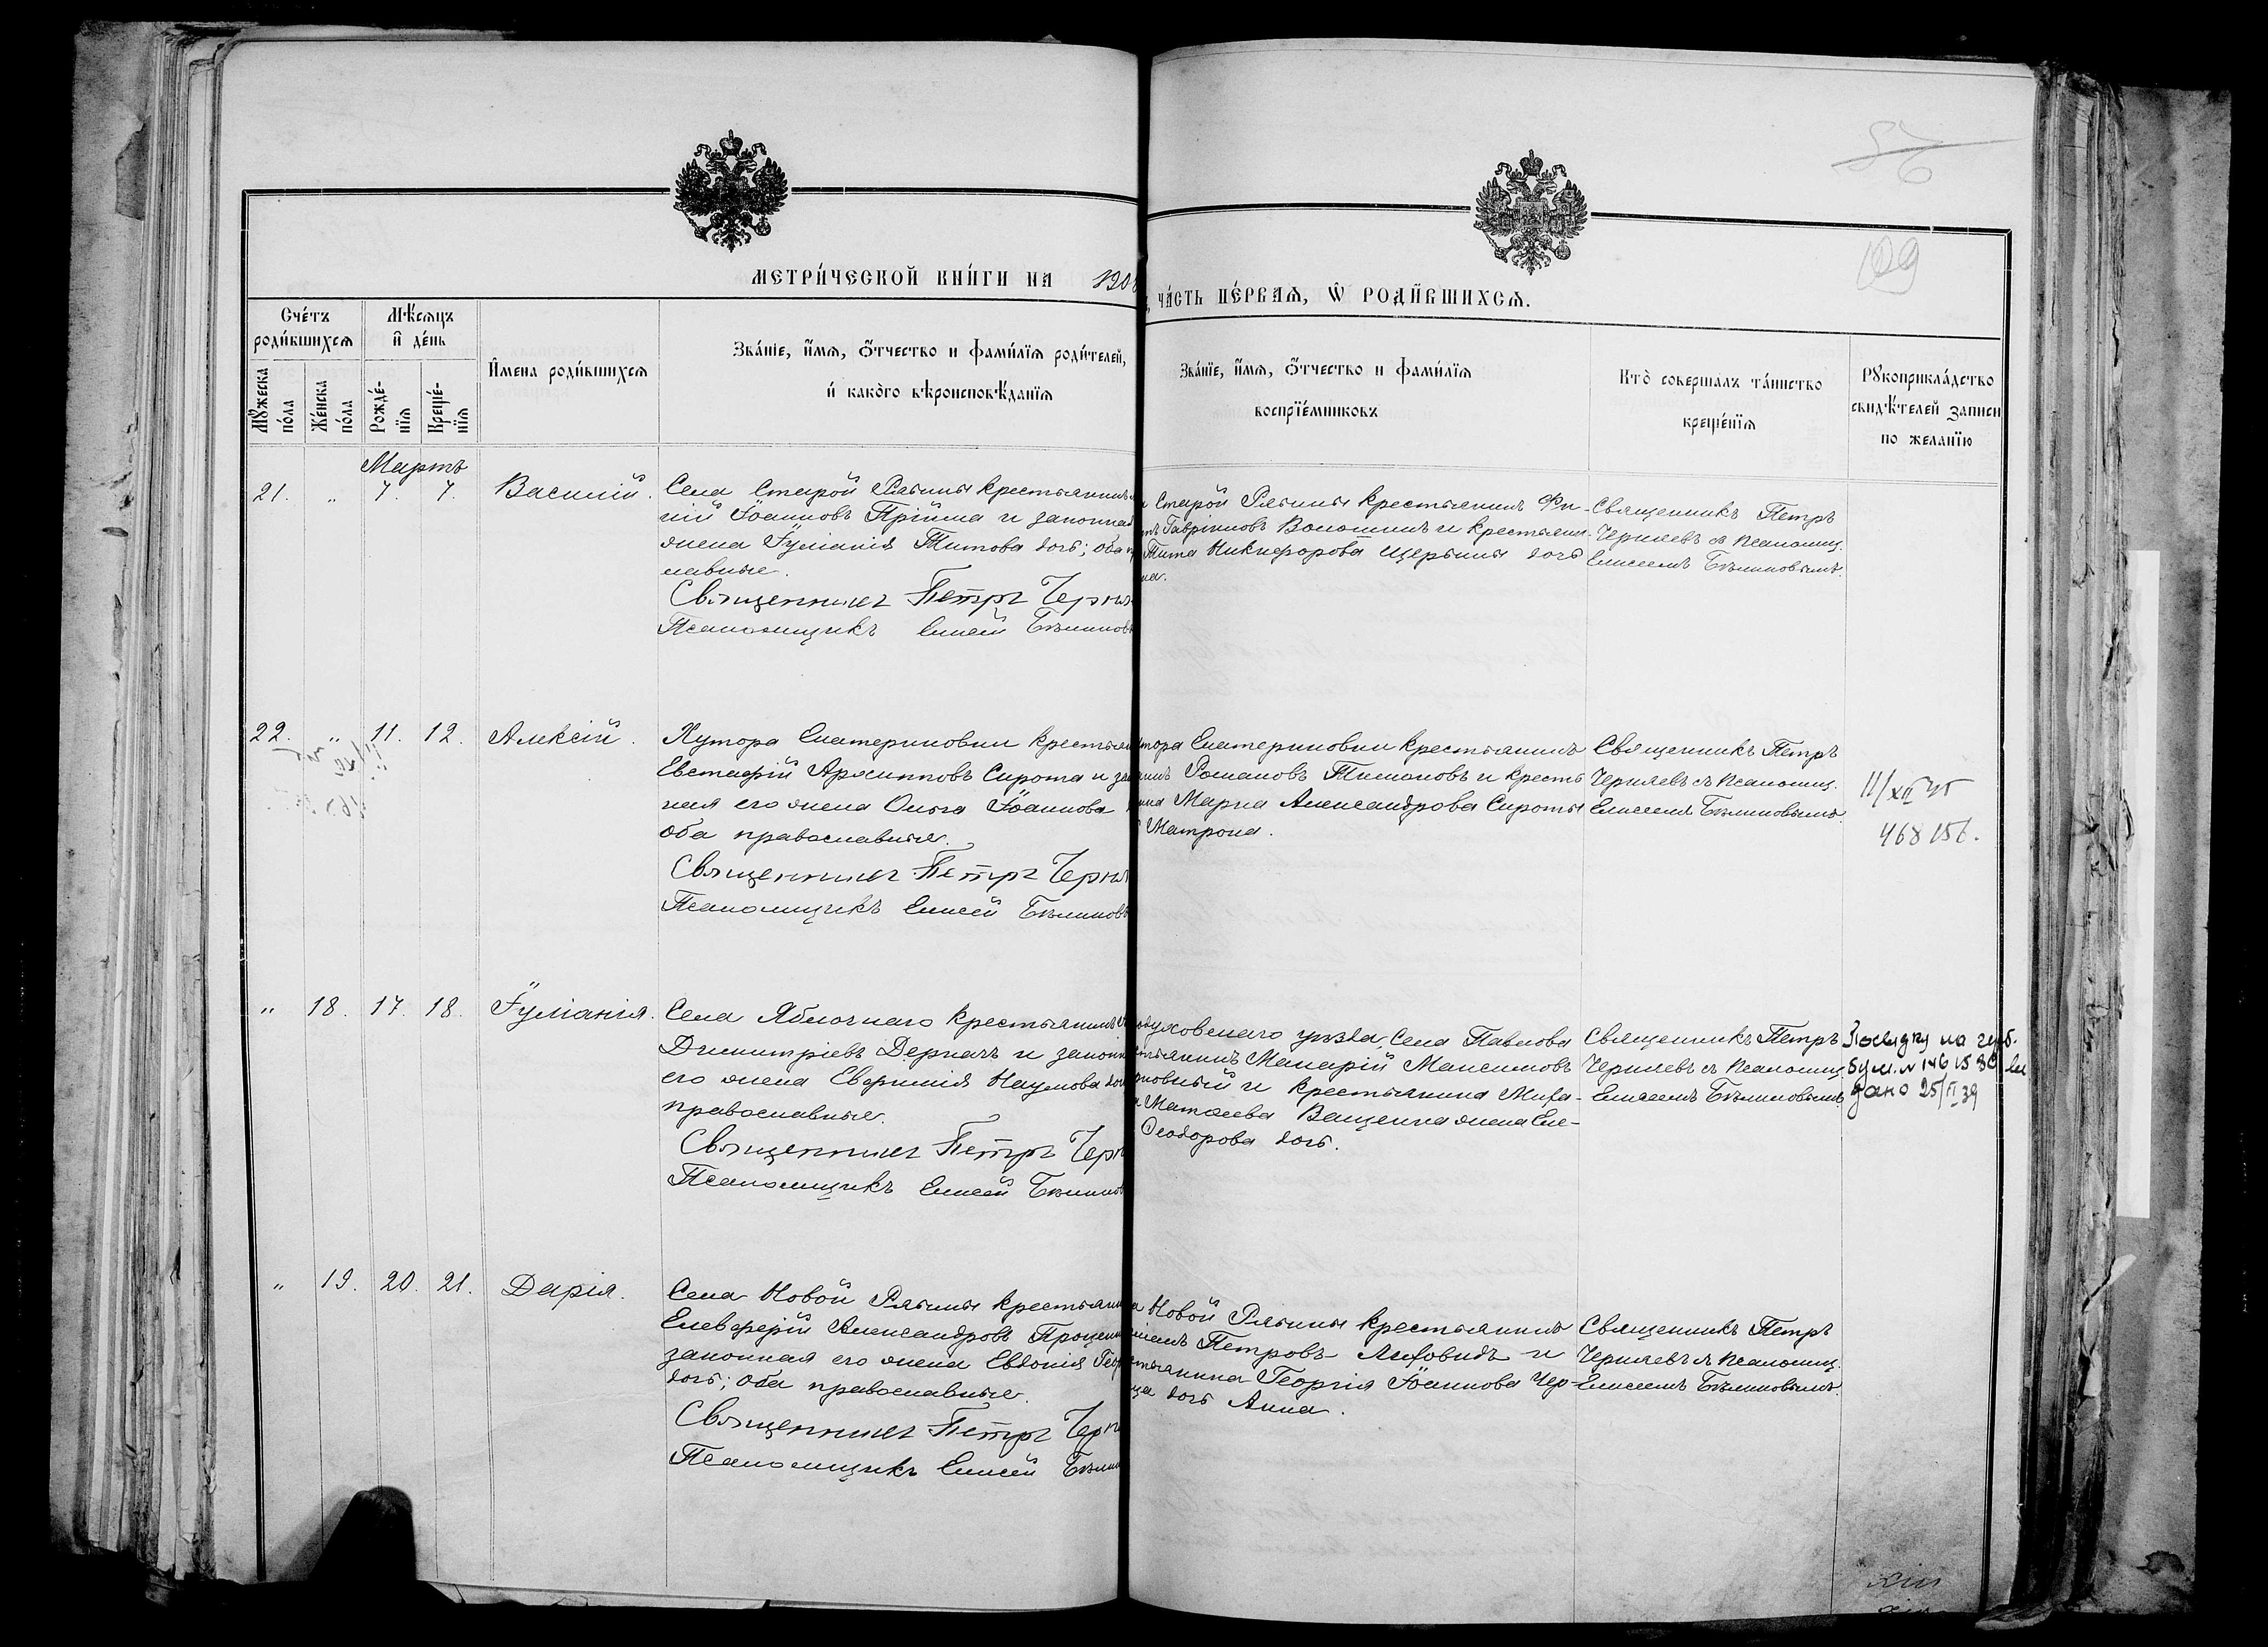 56
129
МЕТРИ́ЧЕСКОЙ КНИ́ГИ НА 1908
ЧА́СТЬ ПЕ́РВАѦ, Ѡ҆ РОДИ́ВШИХСѦ.
Сче́тъ роди́вшихсѧ
Мꙋ́жеска по́ла
Же́нска по́ла
Мѣ́сѧцъ и҆ де́нь
Рожде́-нїѧ
Креще́-нїѧ
И҆мена̀ роди́вшихсѧ
Зва́нїе, и҆́мѧ, ѻ҆́тчество и фами́лїѧ роди́телей,
и҆ како́гѡ вѣроисповѣ́данїѧ
Зва́нїе, и҆́мѧ, ѻ҆́тчество и фами́лїѧ
воспрїе́мниковъ
Кто̀ соверша́лъ та́инство
креще́нїѧ
Рꙋкоприкла́дство
свидѣ́телей записи
по жела́нїю
Мартъ
21. " 7. 7. Василій.
Села Старой Рябины крестьянинъ
гій Іоанновъ Прійма и законная
жена Іуліанія Титова дочь; оба
славные.
Священникъ Петръ Черня
Псаломщикъ Елисей Бѣлиновъ
Старой Рябины крестьянинъ Фи-
Гавріиловъ Волошинъ и крестьянина
Тита Никифорова Щербины дочь
на.
Священникъ Петръ
Черняевъ съ псаломщ.
Елисеемъ Бѣлиновымъ.
22. " 11. 12. Алексій.
Хутора Екатериновки крестьян
Евстафій Архипповъ Сирота и за
ная его жена Ольга Іоаннова
оба православные.
Священникъ Петръ Черня
Псаломщикъ Елисей Бѣлиновъ
тора Екатериновки крестьянинъ
Романовъ Тимоновъ и кресть
Марка Александрова Сироты
Матрона.
Священникъ Петръ
Черняевъ съ псаломщ.
Елисеемъ Бѣлиновымъ.
11/XII 45
468156.
" 18. 17. 18. Іуліанія.
Села Яблочнаго крестьянинъ
Димитріевъ Дергачъ и законн
его жена Евфимія Наумова доч
православные.
Священникъ Петръ Черн
Псаломщикъ Елисей Бѣлинов
одуховскаго уѣзда, села Павлова
стьянинъ Макарій Максимовъ
и крестьянина Миха-
Матѳеева Ващенка жена Еле-
Ѳеодорова дочь.
Священникъ Петръ
Черняевъ съ псаломщ.
Елисеемъ Бѣлиновымъ.
на герб.
бум. № 146
дано 25/II 39
" 19. 20. 21. Дарія.
Села Новой Рябины крестьяни
Елевферій Александровъ Проценк
законная его жена Евдокія Геор
дочь; оба православные.
Священникъ Петръ Черн
Псаломщикъ Елисей Бѣлин
Новой Рябины крестьянинъ
Петровъ Лиховидъ и
стьянина Георгія Іоаннова Чер-
дочь Анна.
Священникъ Петръ
Черняевъ съ псаломщ.
Елисеемъ Бѣлиновымъ.